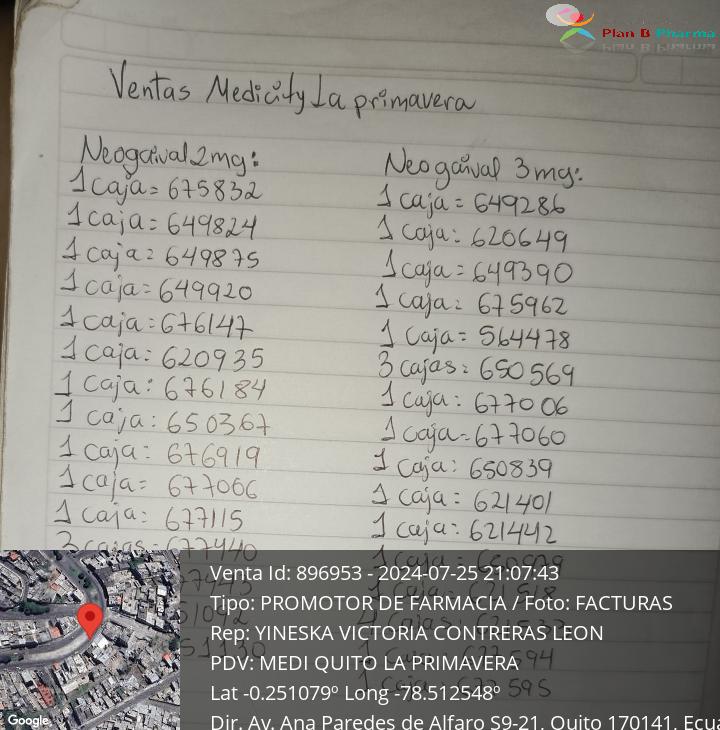 Plan B Pharma
Ventas Medicity La primavera
Neogaival 2mg:
1 caja = 675832
1 caja = 649824
1 caja = 649875
1 caja = 649920
1 caja = 676147
1 caja: 620935
1 caja: 676184
1 caja: 650367
1 caja: 676919
1 caja = 677066
1 caja: 677115
3 cajas = 677440
Neogaival 3mg:
1 caja = 649286
1 caja: 620649
1 caja = 649390
1 caja: 675962
1 caja = 564478
3 cajas: 650569
1 caja: 677006
1 caja = 677060
1 caja: 650839
1 caja: 621401
1 caja: 621442
1 caja
Venta Id: 896953 - 2024-07-25 21:07:43
Tipo: PROMOTOR DE FARMACIA / Foto: FACTURAS
Rep: YINESKA VICTORIA CONTRERAS LEON
PDV: MEDI QUITO LA PRIMAVERA
Lat -0.251079º Long -78.512548º
Dir. Av. Ana Paredes de Alfaro S9-21, Quito 170141, Ecua
Google